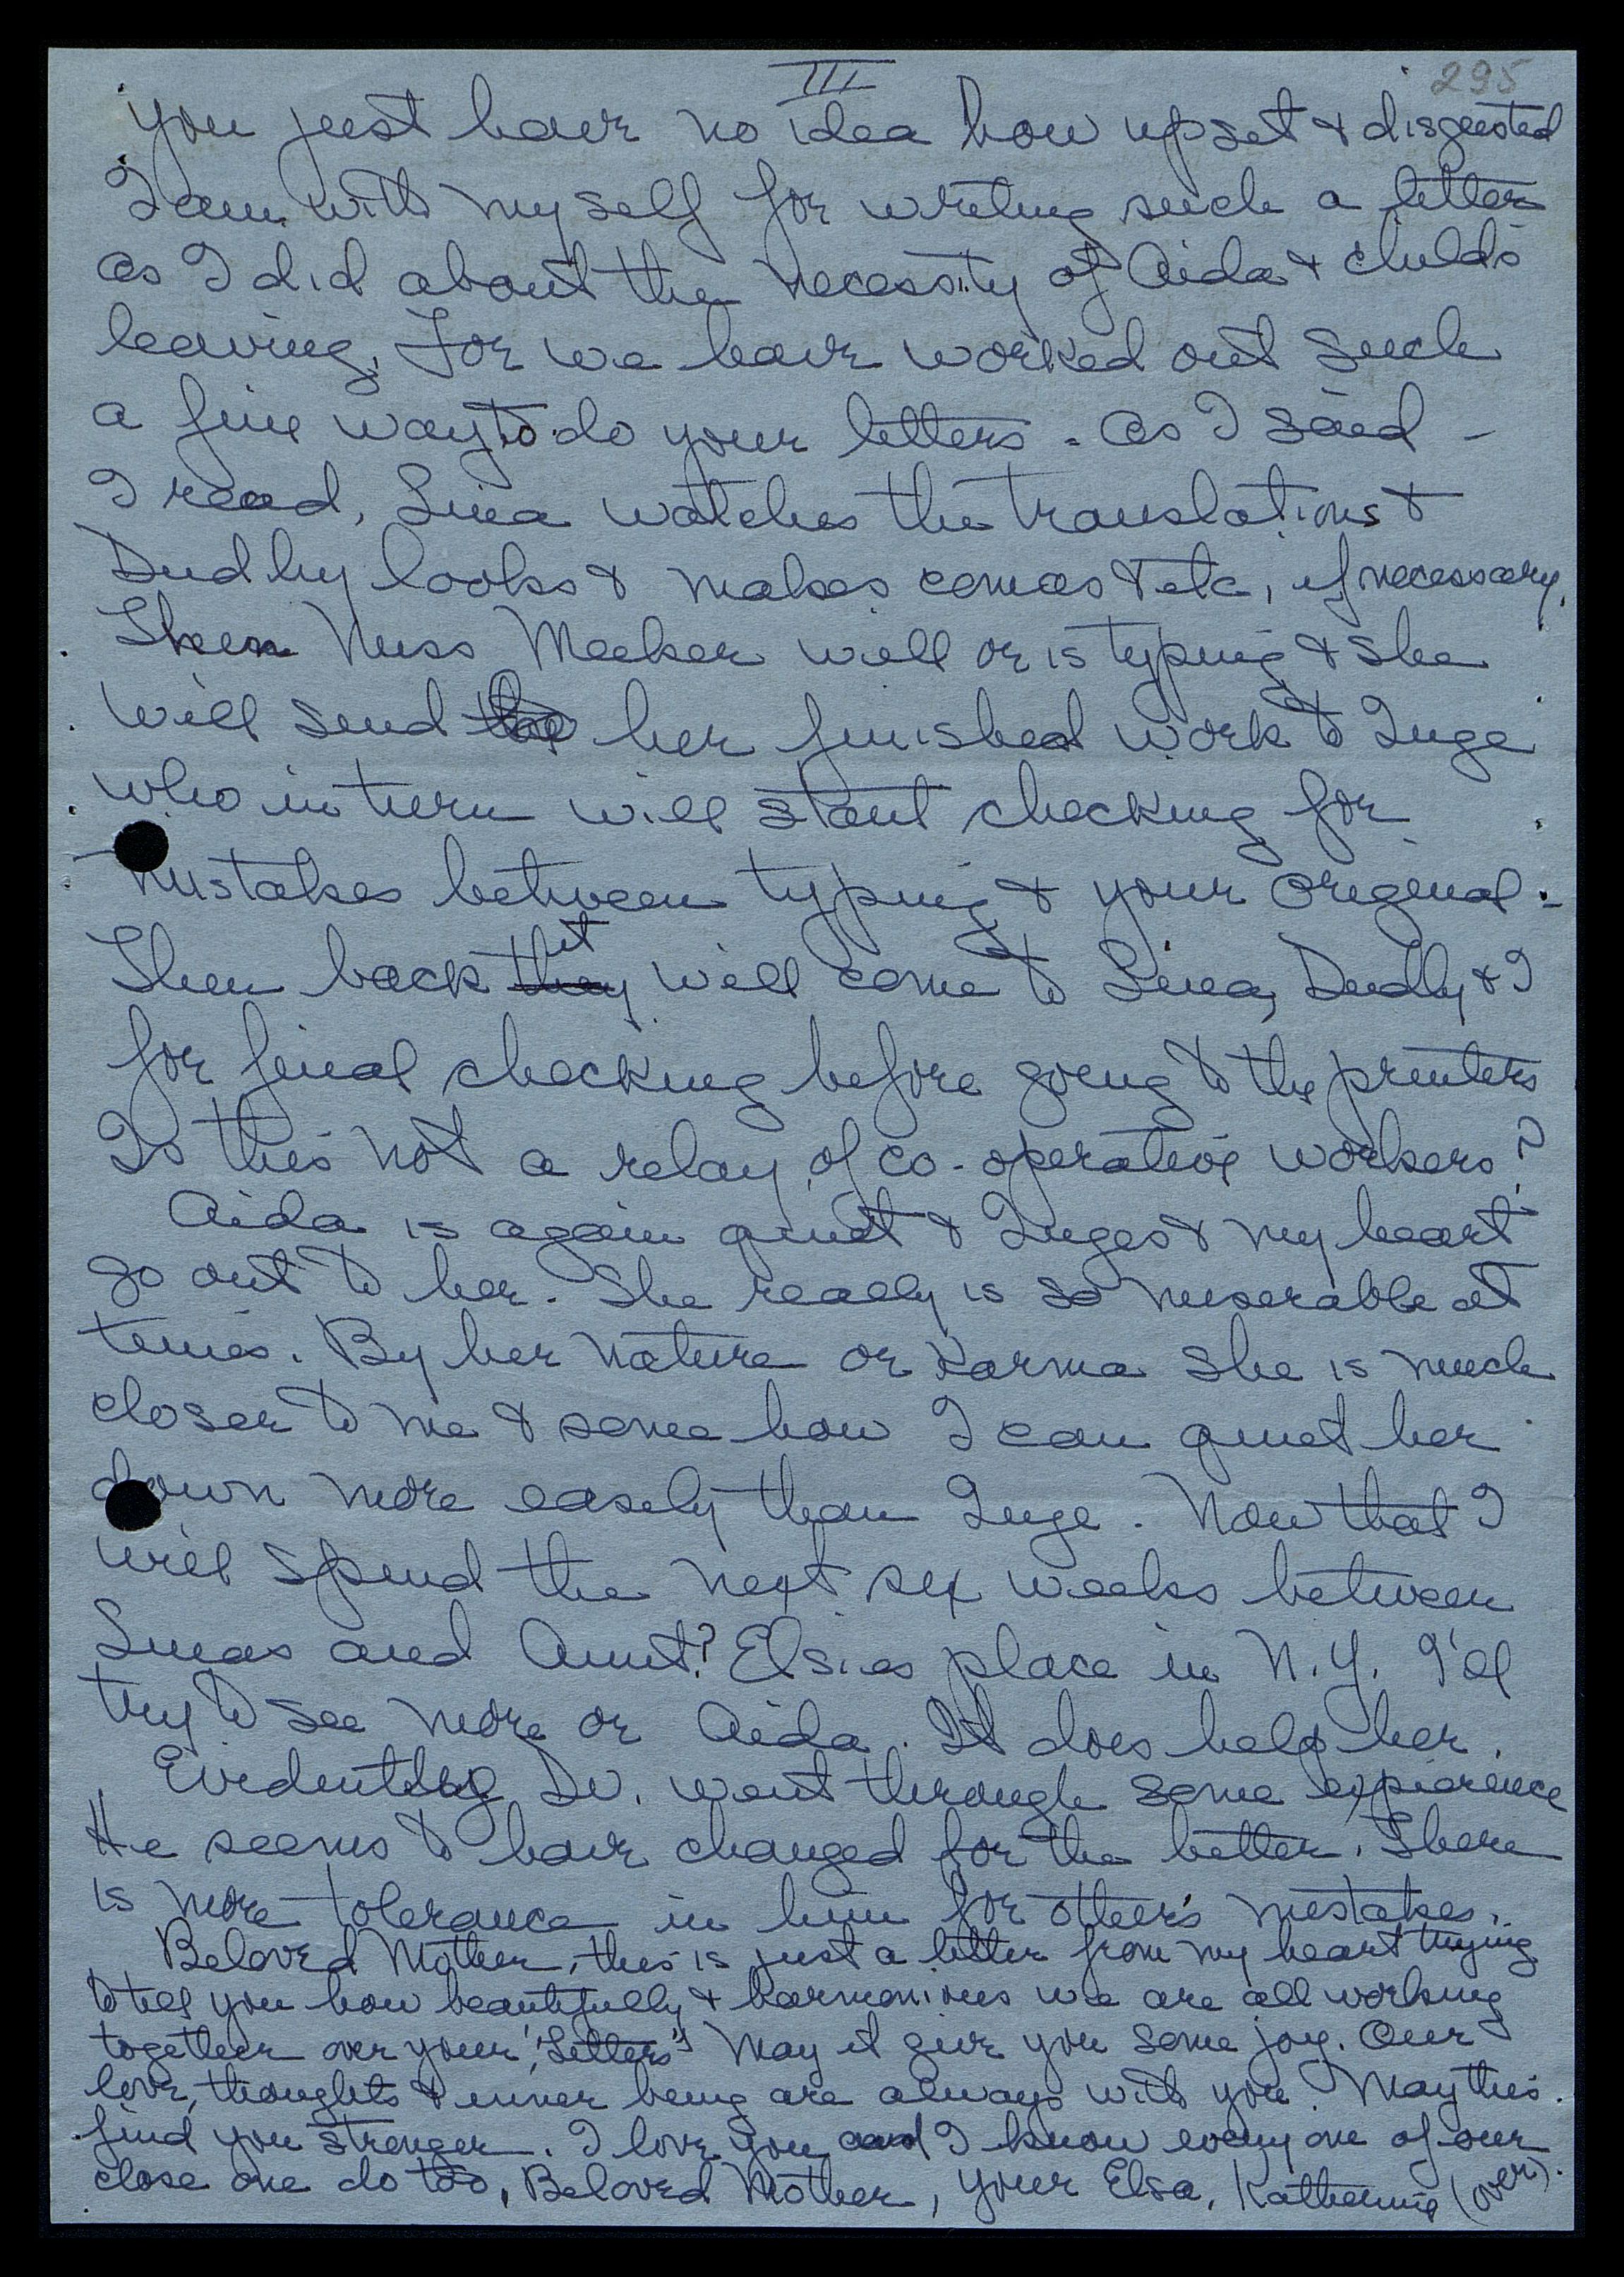 III
295
you just have no idea how upset & disgusted
I am with myself for writing such a letter
as I did about the necessity of Aida & child's
leaving. For we have worked out such
a fine way to do your letters - as I said -
I read, Sina watches the translations &
Dudley looks & makes comas & etc, if necessary.
Then Miss Meeker will or is typing & she
will send her finished work to Inge
who in turn will start checking for
mistakes between typing & your original -
Then back it will come to Sina, Dudly & I
for final checking before going to the printers
Is this not a relay of co-operative workers?
Aida is again quiet & Inges & my heart
go out to her. She really is so miserable at
times. By her nature or Karma she is much
closer to me & some how I can quiet her
down more easely than Inge. Now that I
will spend the next six weeks between
Sinas and Aunt? Elsies place in N.Y. I'll
try to see more or Aida. It does help her.
Evidently Dv. went through some expierence
He seems to have changed for the better. There
is more tolerance in him for other's mistakes.
Beloved Mother, this is just a letter from my heart trying
to tell you how beautifully & harmonious we are all working
together over your "Letters" May it give you some joy. Our
love, thoughts & inner being are always with you. May this
find you stronger. I love you and I know every one of our
close one do too, Beloved Mother, your Elsa, Katherine (over).